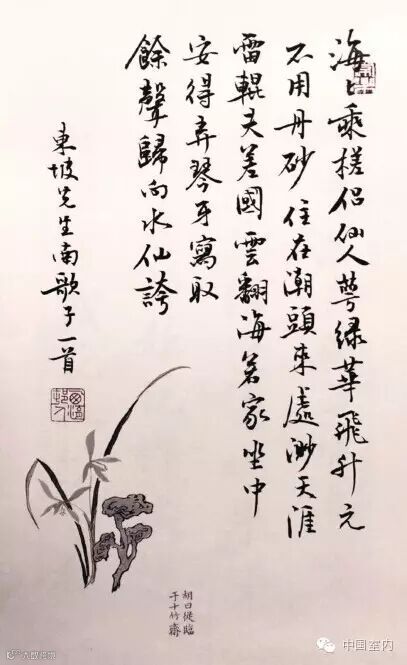 海上乘槎侶仙人萼綠華飛升元
不用丹砂住在潮頭來處渺天涯
雷輥夫差國雲翻海若家坐中
安得弄琴牙寫取
餘聲歸向水仙誇
東坡先生南歌子一首
胡曰從臨
于十竹齋
中国室内